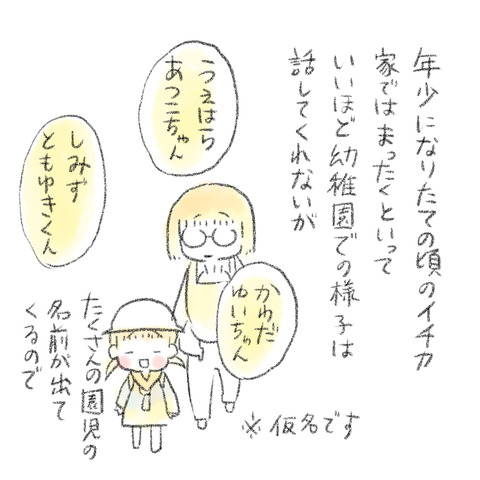 年少になりたての頃のイチカ
家ではまったくといって
いいほど幼稚園での様子は
話してくれないが
うえはら
あつこちゃん
しみず
ともゆきくん
かわだ
ゆいちゃん
たくさんの園児の
名前が出て
くるので
※仮名です